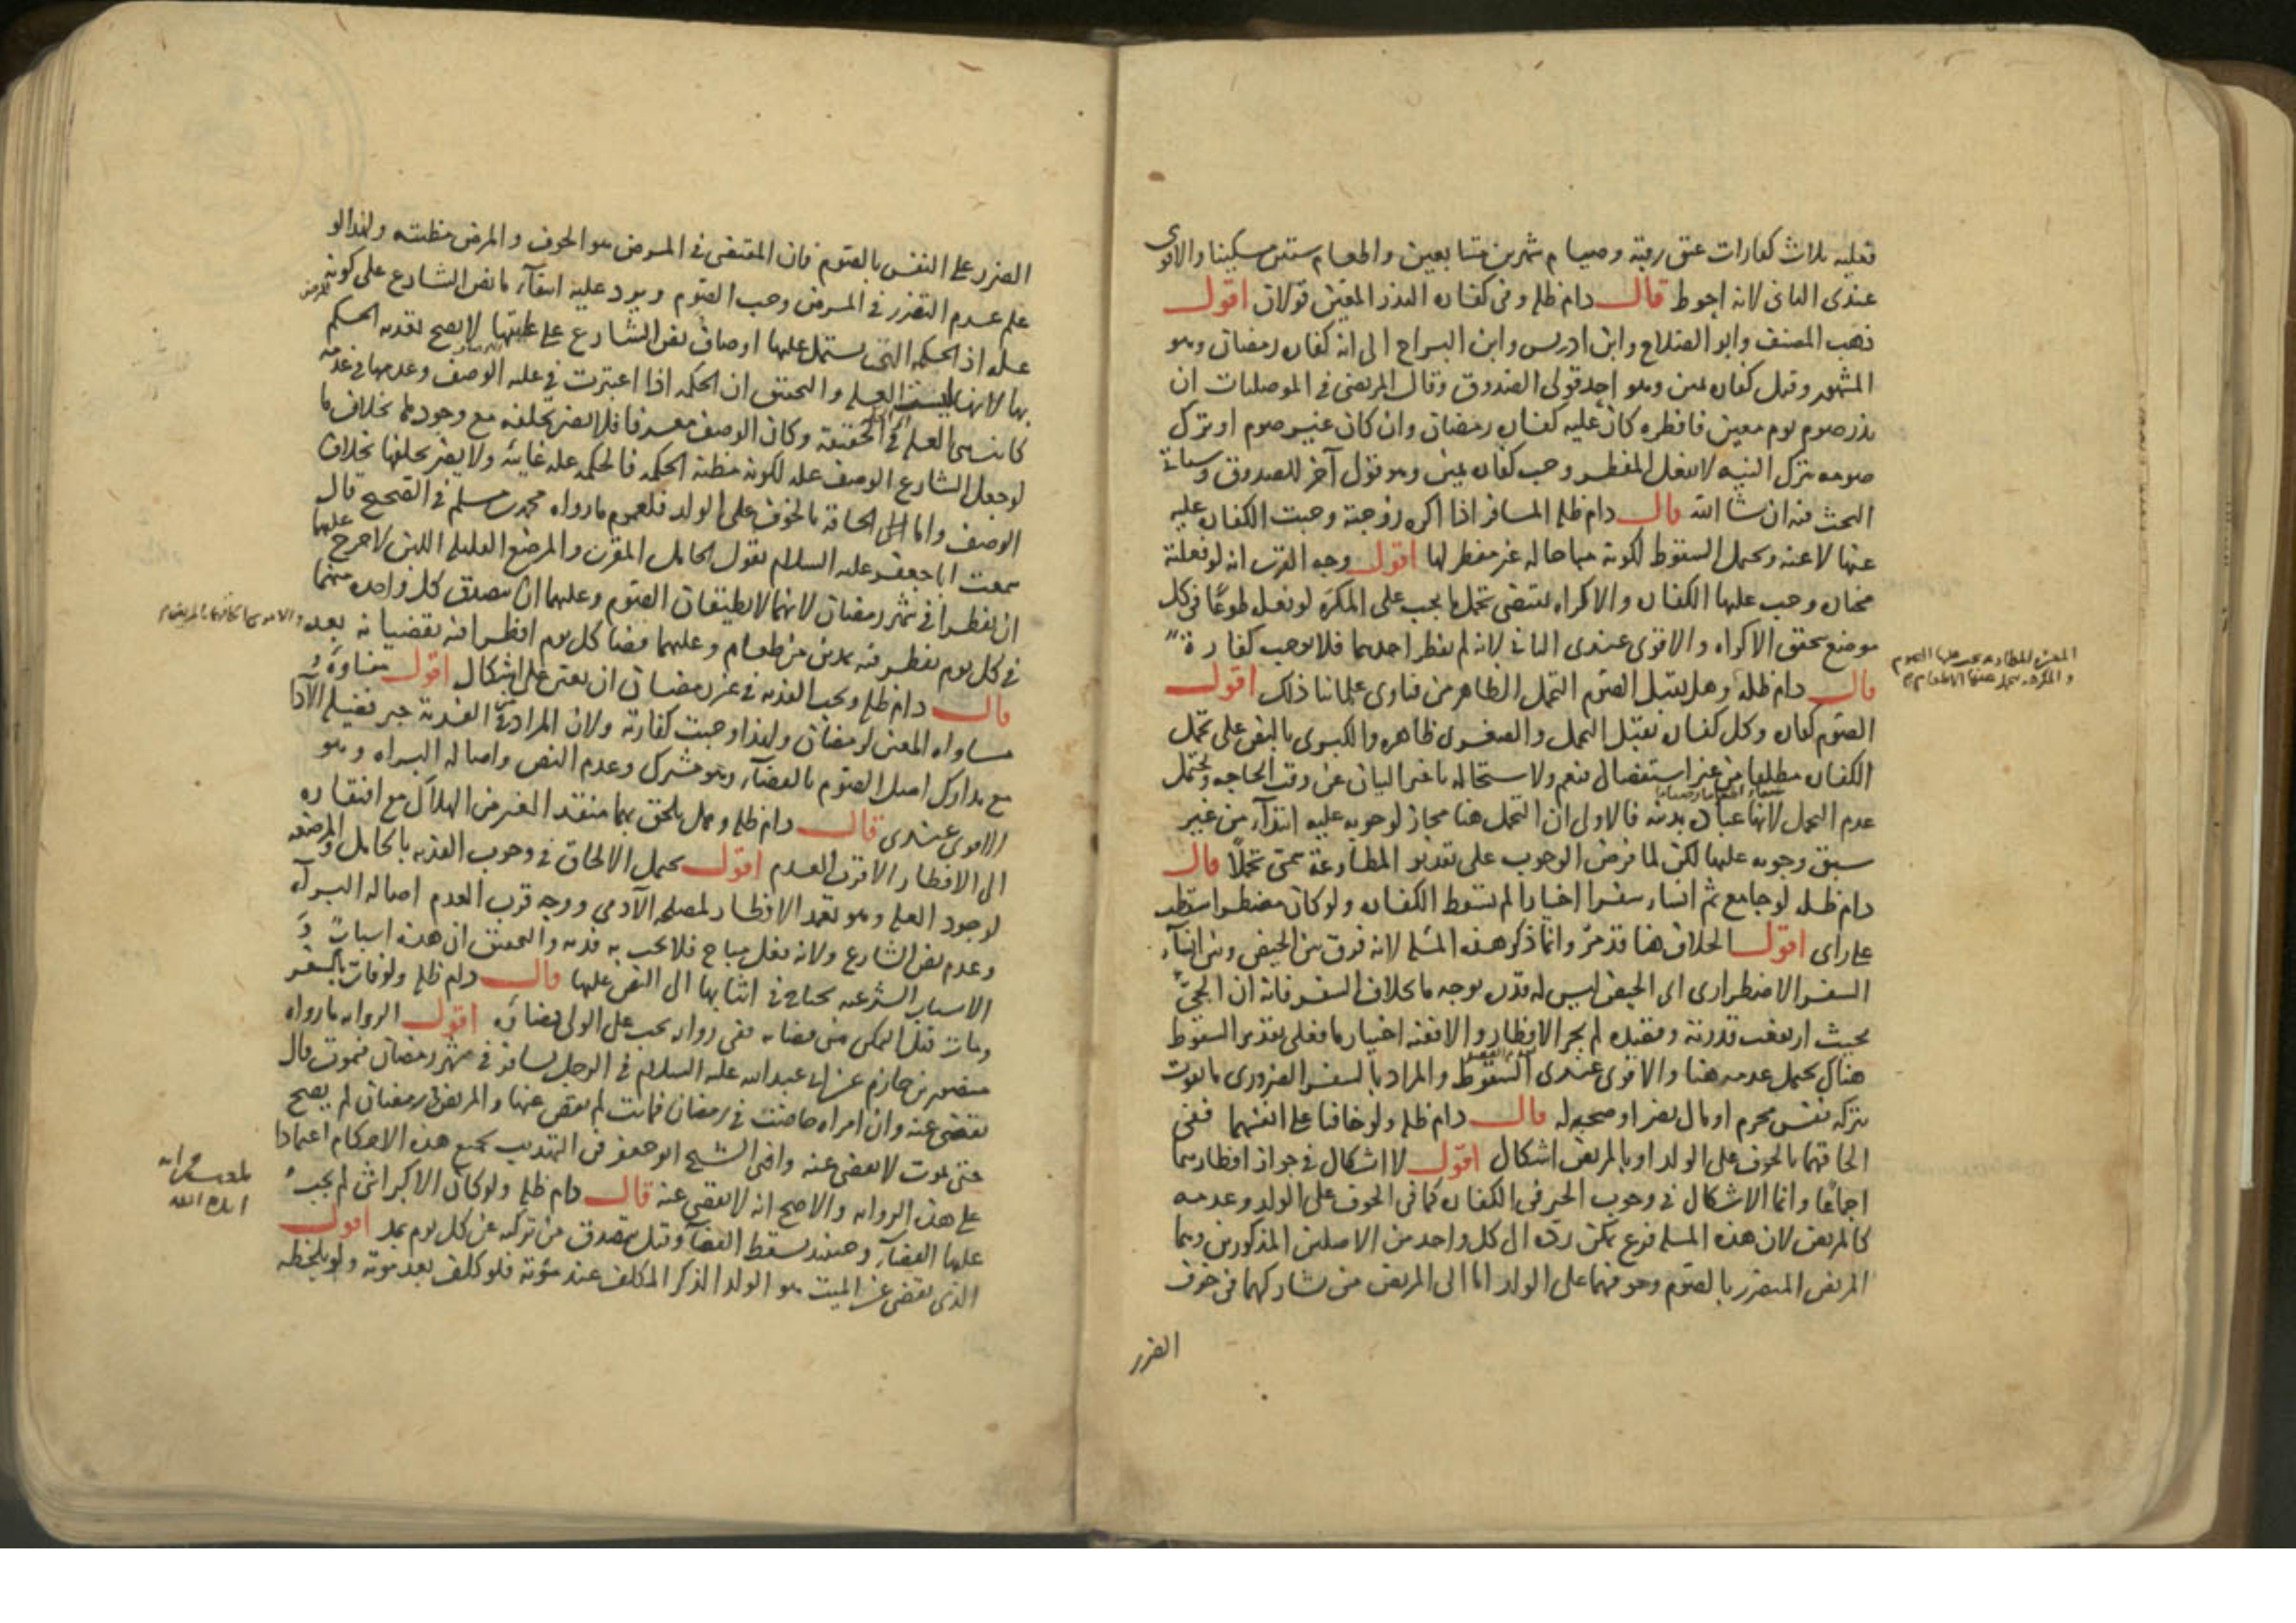 فعليه ثلاث كفارات عتق رقبة وصيام شهرين متتابعين واطعام ستين مسكينا والاقوى
عندى الثانى لانه احوط قال دام ظله وفى كفارة النذر المعين قولان اقول
ذهب المصنف وابو الصلاح وابن ادريس وابن البراج الى انه كفارة رمضان وهو
المشهور وقيل كفارة يمين وهو احد قولى الصدوق وقال المرتضى فى الموصليات ان
نذر صوم يوم معين فافطره كان عليه كفارة رمضان وان كان غير صوم او ترك
صومه بترك النية لا بفعل المفطر وجب كفارة يمين وهو قول آخر للصدوق وسياتى
البحث فيه ان شا الله قال دام ظله المسافر اذا اكره زوجته وجبت الكفارة عليه
عنها لا عنه ويحتمل السقوط لكونه مباحا له غير مفطر لها اقول وجه القرب انه لو فعلته
مختارة وجب عليها الكفارة والاكراه يقتضى تحمل ما يجب على المكره لو فعل طوعا فى كل
موضع تحقق الاكراه والاقوى عندى الثانى لانه لم يفطر احدهما فلا يوجب كفارة
قال دام ظله وهل يقبل الصوم التحمل الظاهر من فتاوى علمائنا ذلك اقول
الصوم كفارة وكل كفارة تقبل التحمل والصغرى ظاهرة والكبرى بالنص على تحمل
الكفارة مطلقا من غير استفصال فيعم ولاستحالة تاخير البيان عن وقت الحاجة ويحتمل
عدم التحمل لانها عبادة بدنية فالاولى ان التحمل هنا مجاز لوجوبه عليه ابتداء من غير
سبق وجوبه عليها لكن لما فرض الوجوب على تقدير المطاوعة سمى تحملا قال
دام ظله لو جامع ثم انشا سفرا اختيارا لم تسقط الكفارة ولو كان مضطرا سقطت
على راى اقول الخلاف هنا قد مر وانما ذكر هذه المسئلة لانه فرق بين الحيض وبين انشاء
السفر الاضطرارى اى الحيض ليس له قدرة بوجه ما بخلاف السفر فانه ان الجئ
بحيث ارتفعت قدرته وقصده لم يجز الافطار والا فقيه اختيار ما فعلى تقدير السقوط
هناك يحتمل عدمه هنا والاقوى عندى السقوط والمراد بالسفر الضرورى ما يفوت
بتركه نفس محرم او مال يضر او صحبه له قال دام ظله ولو خافتا على انفسهما ففى
الحاقهما بالخوف على الولد او بالمريض اشكال اقول لا اشكال فى جواز افطارهما
اجماعا وانما الاشكال فى وجوب الجبر فى الكفارة كما فى الخوف على الولد وعدمه
كالمريض لان هذه المسئلة فرع يمكن رده الى كل واحد من الاصلين المذكورين وهما
المريض المتضرر بالصوم وخوفهما على الولد اما الى المريض فمن تشاركهما فى خوف
الضرر
المطاوعة يجب عليها الصوم
والمكرهة يتحمل عنها الاطعام
الضرر على النفس بالصوم فان المقتضى فى المرض هو الخوف والمرض مظنته ولهذا لو
علم عدم التضرر فى المرض وجب الصوم ويرد عليه انتفاء ما نص الشارع على كونه
علة اذ الحكمة التى تشتمل عليها اوصاف نص الشارع على عليتها لا يصح تعدية الحكم
بها لانها ليست العلة والتحقيق ان الحكمة اذا اعتبرت فى علية الوصف وعدمها فى عدمه
كانت هى العلة فى الحقيقة وكان الوصف معرفا فلا يضر تخلفه مع وجودها بخلاف ما
لو جعل الشارع الوصف علة لكونه مظنة الحكمة فالحكمة علة غائية ولا يضر تخلفها بخلاف
الوصف واما الحاقه بالخوف على الولد فلعموم ما رواه محمد بن مسلم فى الصحيح قال
سمعت ابا جعفر عليه السلام يقول الحامل المقرب والمرضع القليلة اللبن لا حرج عليهما
ان تفطرا فى شهر رمضان لانهما لا تطيقان الصوم وعليهما ان تتصدق كل واحدة منهما
فى كل يوم تفطر فيه بمد من طعام وعليهما قضا كل يوم افطرتا فيه تقضيانه بعد
قال دام ظله وتجب الفدية فى غير رمضان ان تعين على اشكال اقول منشاوه
مساواة المعين لرمضان ولهذا وجبت كفارته ولان المراد من الفدية جبر فضيلة الآدا
مع تدارك اصل الصوم بالقضاء وهو مشترك وعدم النص واصالة البراة وهو
الاقوى عندى قال دام ظله وهل يلحق بهما منقذ الغير من الهلاك مع افتقاره
الى الافطار الاقرب العدم اقول يحتمل الالحاق فى وجوب الفدية بالحامل والمرضعة
لوجود العلة وهو تعمد الافطار لمصلحة الآدمى ووجه قرب العدم اصالة البراة
وعدم نص الشارع ولانه فعل مباح فلا تجب به فدية والتحقيق ان هذه اسباب و
الاسباب الشرعية يحتاج فى اثباتها الى النص عليها قال دام ظله ولو فات بالسفر
ومات قبل التمكن من قضائه ففى رواية يجب على الولى قضاؤه اقول الرواية ما رواه
منصور بن حازم عن ابى عبد الله عليه السلام فى الرجل يسافر فى شهر رمضان فيموت قال
يقضى عنه وان امراة حاضت فى رمضان فماتت لم يقض عنها والمريض فى رمضان لم يصح
حتى يموت لا يقضى عنه وافتى الشيخ ابو جعفر فى التهذيب بجميع هذه الاحكام اعتمادا
على هذه الرواية والاصح انه لا يقضى عنه قال دام ظله ولو كان الاكبر انثى لم يجب
عليها القضاء وحينئذ يسقط القضاء وقيل يتصدق من تركته عن كل يوم بمد اقول
الذى يقضى عن الميت هو الولد الذكر المكلف عند موته فلو كلف بعد موته ولو بلحظة
ايده الله